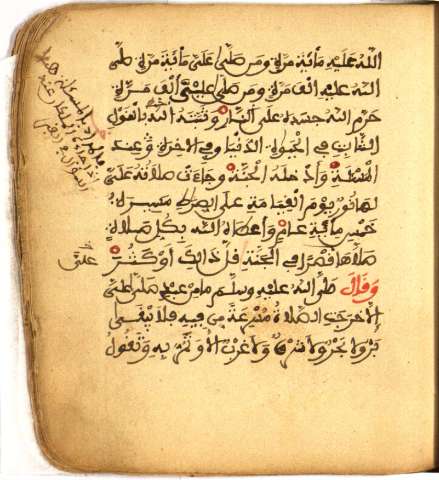 الله عليه مائة مرة ومن صلى علي مائة مرة صلى
الله عليه الف مرة ومن صلى علي الف مرة
حرم الله جسده على النار وثبته الله بالقول
الثابت في الحيوة الدنيا وفي الاخرة وعند
المسئلة وادخله الجنة وجاءت صلاته علي
لها نور يوم القيامة على الصراط مسيرة
خمس مائة عام واعطاه الله بكل صلاة
صلاها قصرا في الجنة قل ذالك او كثر
علي
وقال صلى الله عليه وسلم ما من عبد صلى علي
الا خرجت الصلاة مسرعة من فيه فلا يبقى
بر ولا بحر ولا شرق ولا غرب الا وتمر به وتقول